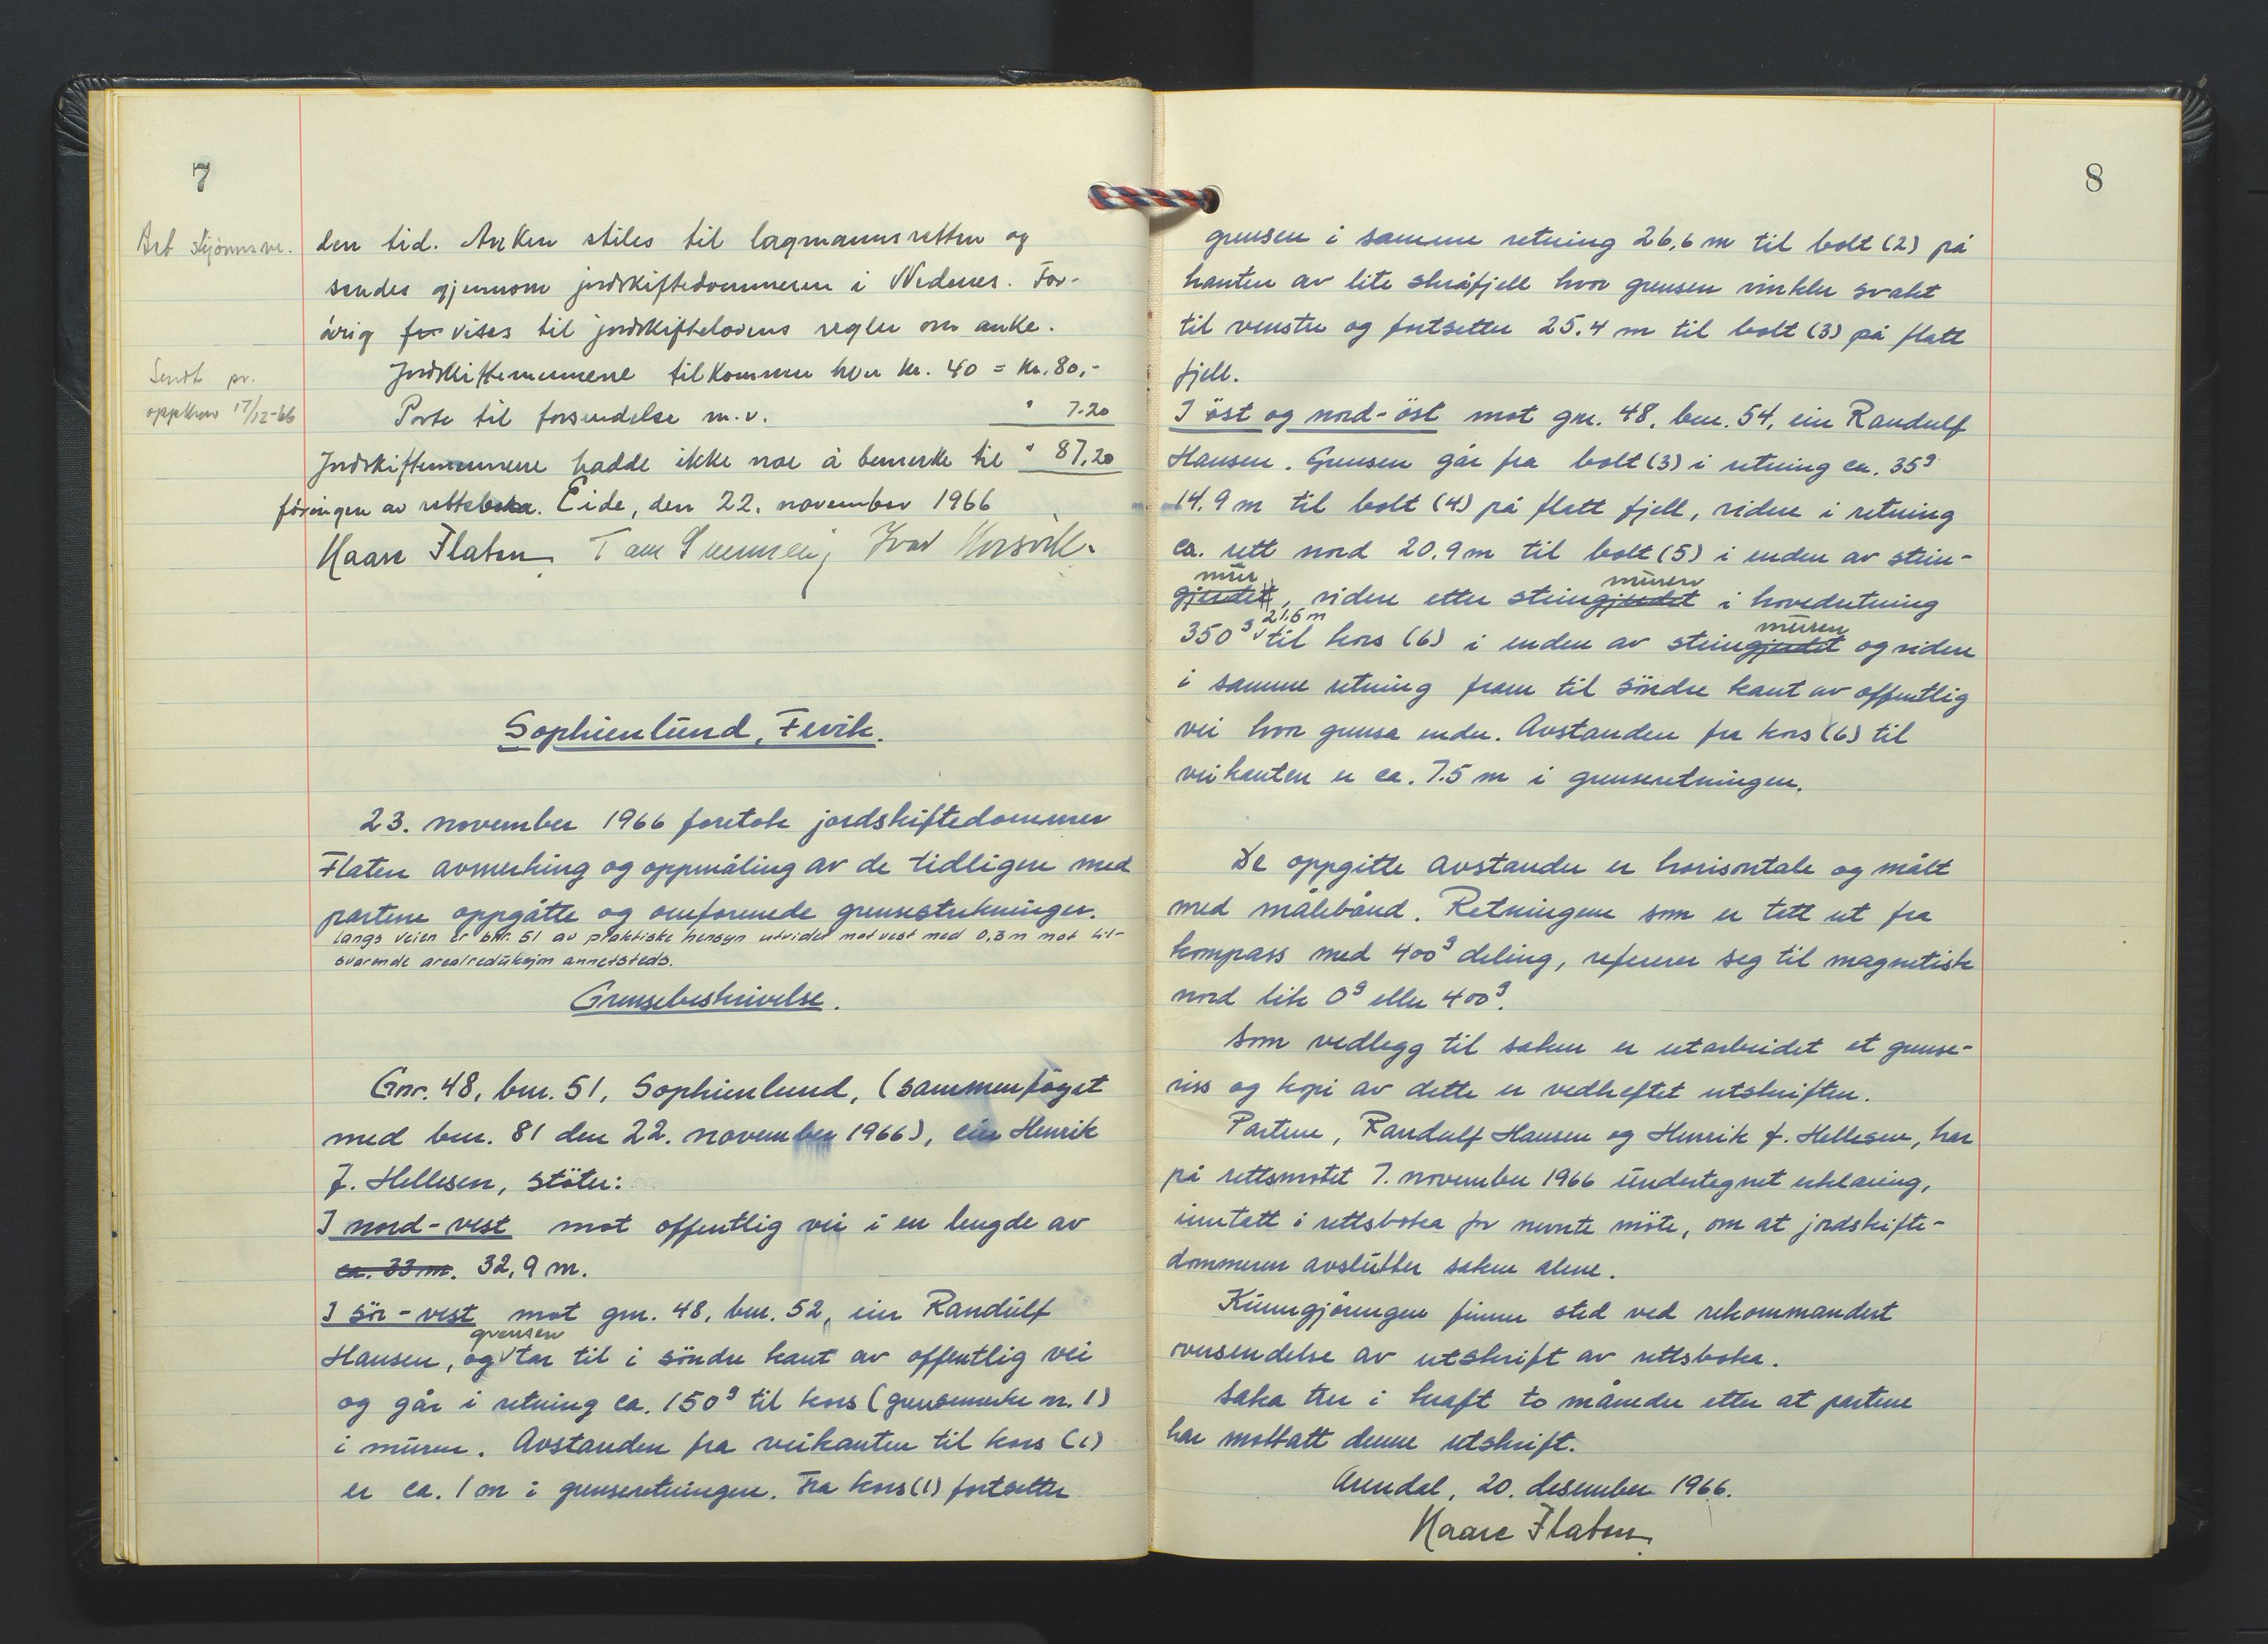 7
den tid. Anken stiles til lagmannsretten og
sendes gjennom jordskiftedommeren i Nedenes. For-
övrig for vises til jordskiftelovens regler om anke.
Sendt pr.
oppkrav 17/12-66
Jordskiftemennene tilkommer hver kr. 40 = kr. 80,-
Porto til forsendelse m.v. " 7.20
Jordskiftemennene hadde ikke noe å bemerke til " 87,20
föringen av rettsboka. Eide, den 22. november 1966
Kaare Flaten Ivar
Sophienlund, Fevik.
23. november 1966 foretok jordskiftedommer
Flaten avmerking og oppmåling av de tidligere med
partene oppgåtte og omforenede grensestrekninger.
Langs veien er bnr. 51 av praktiske hensyn utvidet mot vest med 0,3 m mot til-
svarende arealreduksjon annetsteds.
Grensebeskrivelse.
Gnr. 48, bnr. 51, Sophienlund, (sammenföyet
med bnr. 81 den 22. november 1966), eier Henrik
J. Hellesen, stöter:
I nord-vest mot offentlig vei i en lengde av
ca. 33 m. 32,9 m.
I sör-vest mot gnr. 48, bnr. 52, eier Randulf
Hansen, og grensen tar til i söndre kant av offentlig vei
og går i retning ca. 150g til kors (grensemerke nr. 1)
i muren. Avstanden fra veikanten til kors (1)
er ca. 1 m i grenseretningen. Fra kors (1) fortsetter
8
grensen i samme retning 26,6 m til bolt (2) på
kanten av lite skråfjell hvor grensen vinkler svakt
til venstre og fortsetter 25.4 m til bolt (3) på flatt
fjell.
I öst og nord-öst mot gnr. 48, bnr. 54, eier Randulf
Hansen. Grensen går fra bolt (3) i retning ca. 35g
14.9 m til bolt (4) på flatt fjell, videre i retning
ca. rett nord 20.9 m til bolt (5) i enden av stein-
mur
gjerdet, videre etter steingjerdet muren i hovedretning
350g 21,6 m til kors (6) i enden av steingjerdet muren og videre
i samme retning fram til söndre kant av offentlig
vei hvor grensa ender. Avstanden fra kors (6) til
veikanten er ca. 7.5 m i grenseretningen.
De oppgitte avstander er horisontale og målt
med målebånd. Retningene som er tatt ut fra
kompass med 400g deling, refererer seg til magnetisk
nord lik 0g eller 400g.
Som vedlegg til saken er utarbeidet et grense-
riss og kopi av dette er vedheftet utskriften.
Partene, Randulf Hansen og Henrik J. Hellesen, har
på rettsmötet 7. november 1966 undertegnet erklæring,
inntatt i rettsboka for nevnte möte, om at jordskifte-
dommeren avslutter saken alene.
Kunngjöringen finner sted ved rekommandert
oversendelse av utskrift av rettsboka.
Saka trer i kraft to måneder etter at partene
har mottatt denne utskrift.
Arendal, 20. desember 1966.
Kaare Flaten